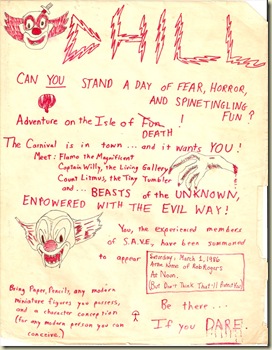 CHILL
CAN YOU STAND A DAY OF FEAR, HORROR,
AND SPINETINGLING
FUN?
Adventure on the Isle of Fun !
DEATH!
The Carnival is in town... and it wants YOU!
Meet: Flamo the Magnificent
Captain Willy, the Living Gallery
Count Litmus, the Tiny Tumbler
and... BEASTS OF THE UNKNOWN,
ENPOWERED WITH THE EVIL WAY!
You, the experienced members
of S.A.V.E., have been summoned
to appear
Saturday, March 1, 1986
At the Home of Rob Rogers
At Noon.
(But Don't Think That'll Save You)
Bring Paper, Pencils, any modern
miniature figures you possess,
and a character conception
(for any modern person you can
conceive.)
Be there...
If you DARE.